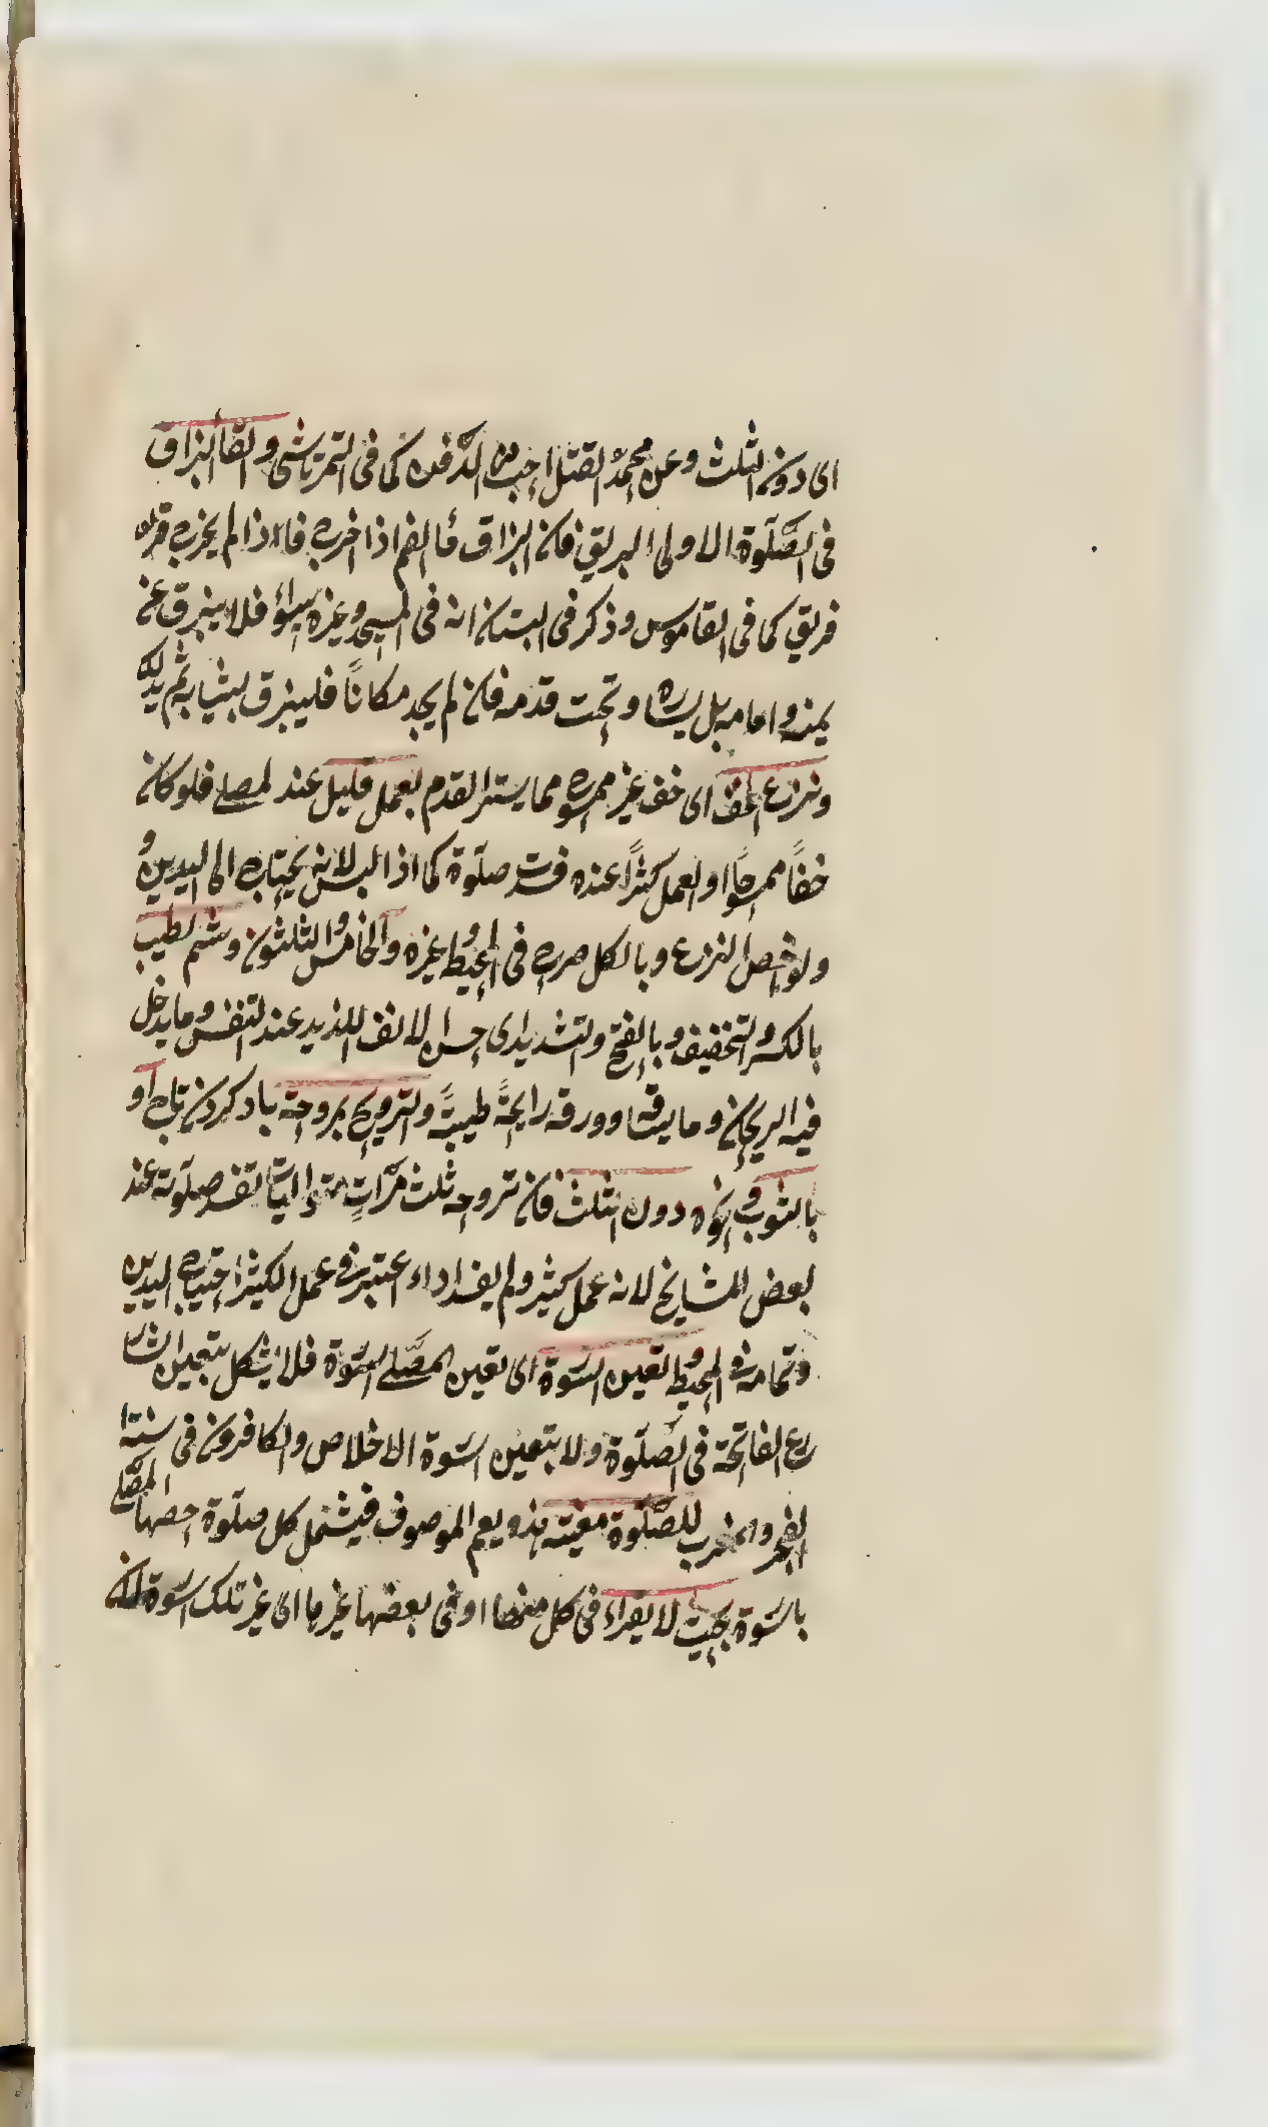 اى دون الثلث وعن محمد القتل احب من الدفن كما فى التمرتاشى والقاء البزاق
فى الصلوة الاولى البريق فان البزاق ماء الفم اذا اخرج فاذا لم يخرج
فريق كما فى القاموس وذكر فى البستان انه فى المسجد وغيره سواء فلا يبزق عن
يمينه وامامه بل يساره وتحت قدمه فان لم يجد مكانا فليبزق بثيابه ثم يدلك
ونزع الخف اى خف غير مموج مما يستر القدم بعمل قليل عند المصلى فلو كان
خفاً او العمل كثيراً عنده فسدت صلوة كما اذا لبس لانه يحتاج الى اليدين
النزع وبالكل صرح فى المحيط وغيره والخامس والثلثون وشم الطيب
بالكسر والتخفيف وبالفتح والتشديد اى احساس الانف اللذيذ عند التنفس وما يدخل
فيه الريحان وما يساقه او ورقه رايحةً طيبةً والترويح بمروحة باد كردن او
بالثوب ونحوه دون الثلث فان تروحه ثلث مرّاتٍ متواليات تفسد صلوته عند
بعض المشايخ لانه عمل كثير ولم يفسد اذا اعتبر فى عمل الكثير احتياج اليدين
وتمامه فى المحيط وتعين السورة اى تعين المصلى السورة فلا يشكل بتعين الشارع
الفاتحة فى الصلوة ولا بتعين سورة الاخلاص والكافرون فى سنتا
الفجر والمغرب للصلوة معينة هذه ويعم الموصوف فيشمل كل صلوة احصها المصلى
باسورة بحيث لا يقراء فى كل منها او فى بعضها غيرها اى غير تلك السورة